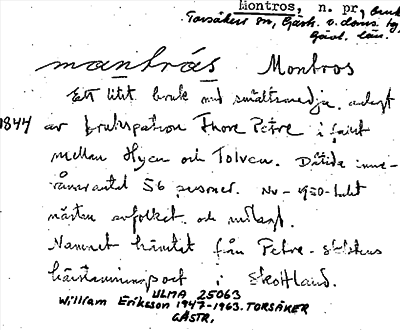 Montros, n. pr., bruk
Torsåkers sn, Gästr. v. doms. hg,
Gävl. län.
mantrás Montros
Ett litet bruk med smältsmedja, anlagt
1844 av brukspatron Thore Petre i
mellan Hyen och Tolven. Dåtida inne-
vånarantal 56 personer. Nu - 1950-talet
nästan avfolket och nedlagt.
Namnet hämtat från Petre-släktens
härstamningsort i Skottland.
ULMA 25063
William Eriksson 1947-1963. TORSÅKER
GÄSTR.